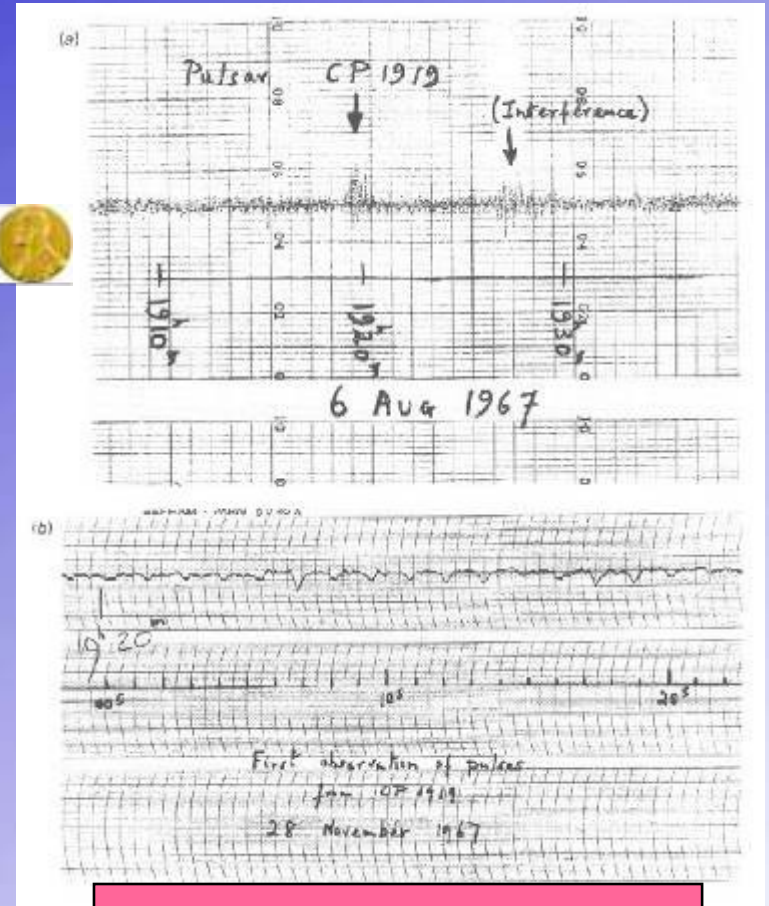 (a)
Pulsar CP 1919
(Interference)
19h10m
19h20m
19h30m
6 AUG 1967
(b)
19h 20m
00s
10s
20s
First observation of pulses
from CP 1919
28 November 1967